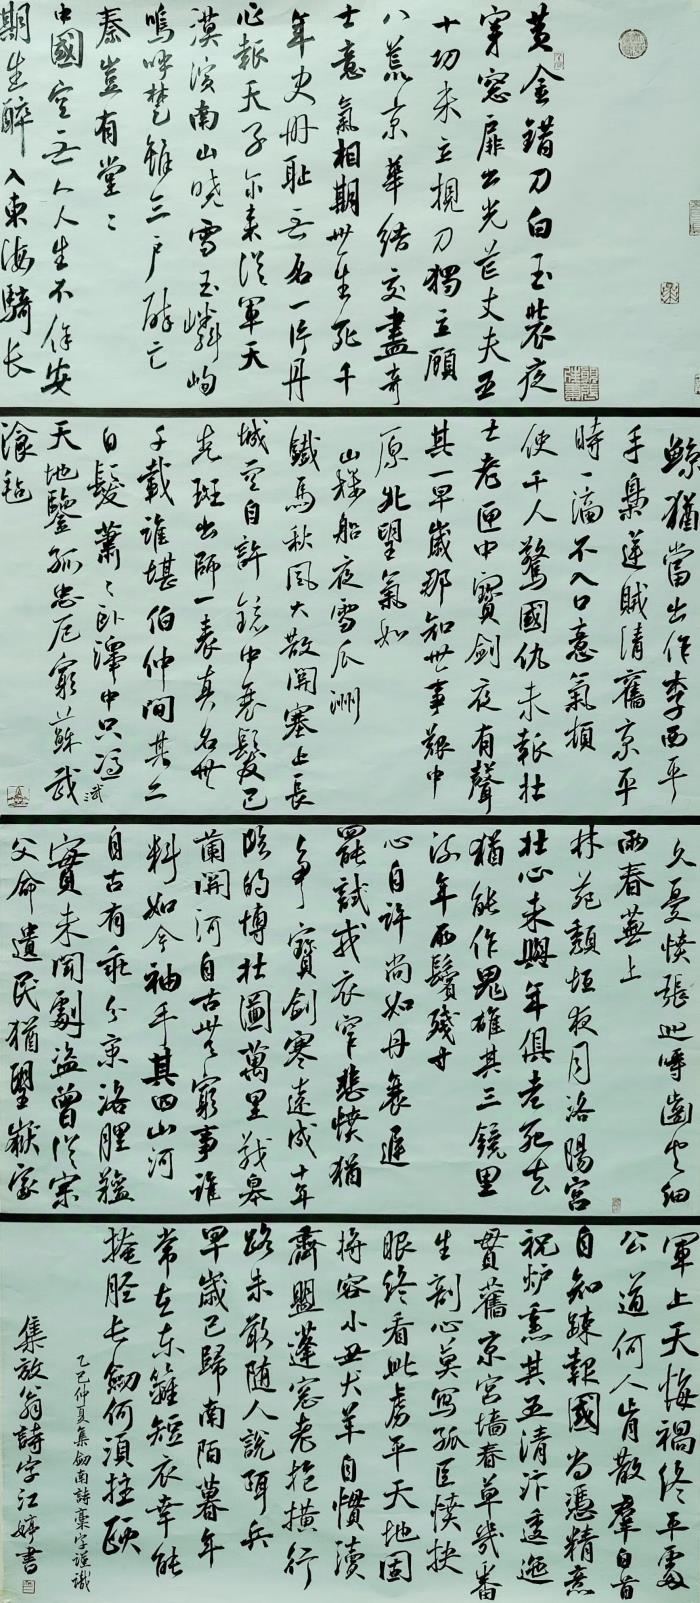 黄金錯刀白玉裝夜
穿窓扉出光芒丈夫五
十功未立提刀獨立顧
八荒京華結交盡奇
士意氣相期共生死千
年史册恥無名一片丹
心報天子尔来從軍天
漢濱南山曉雪玉嶙峋
嗚呼楚雖三户能亡
秦豈有堂〻
中國空無人人生不作安
期生醉入東海騎長
鯨猶當出作李西平
手梟逆賊清舊京平
時一滴不入口意氣頓
使千人驚國仇未報壯
士老匣中寶劍夜有聲
其一早歲那知世事艱中
原北望氣如
山樓船夜雪瓜洲
鐵馬秋風大散關塞上長
城空自許鏡中衰鬢已
先斑出師一表真名世
千載誰堪伯仲間其二
白髮蕭〻卧澤中只憑
天地鑒孤忠厄窮蘇武
飡氈
久憂憤張巡嚼齒空細
雨春蕪上
林苑頹垣夜月洛陽宫
壯心未與年俱老死去
猶能作鬼雄其三鏡里
流年兩鬢殘寸
心自許尚如丹衰遲
罷試戎衣窄悲憤猶
争寶劍寒遠戍十年
臨的博壯圖萬里戰皋
蘭關河自古無窮事誰
料如今袖手其四山河
自古有乖分京洛腥羶
實未聞劇盗曾從宗
父命遺民猶望嶽家
軍上天悔禍終平虜
公道何人肯散羣白首
自知疎報國尚憑精意
祝炉熏其五清汴逶迤
貫舊京宫墙春草幾番
生剖心莫寫孤臣憤抉
眼終看此虜平天地固
將容小丑犬羊自慣瀆
齊盟蓬窓老抱横行
路未敢随人說弭兵
早歲已歸南陌暮年
常在東籬短衣幸能
掩脛長劔何須拄頤
乙巳仲夏集劍南詩稾字谨識
集放翁詩字江婷書